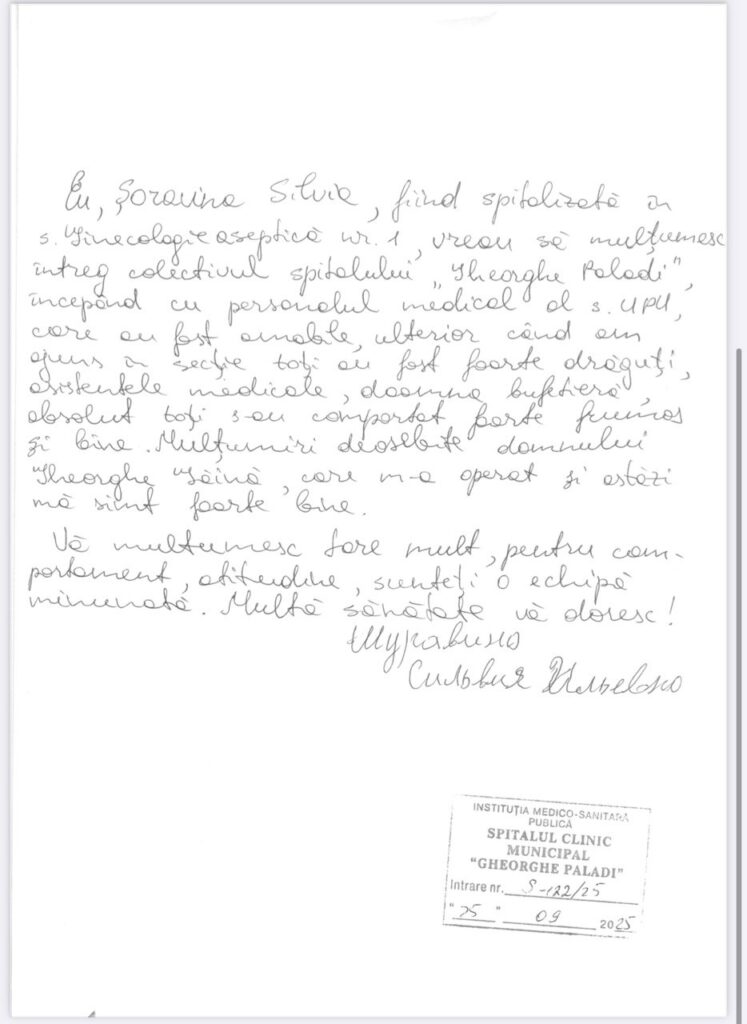 Eu, Șoravina Silvia, fiind spitalizată în
s. Ginecologie aseptică nr. 1, vreau să mulțumesc
întreg colectivul spitalului „Gheorghe Paladi",
începând cu personalul medical al s. UPU,
care au fost amabile, ulterior când am
ajuns în secție toți au fost foarte drăguți,
asistentele medicale, doamna bufetieră,
absolut toți s-au comportat foarte frumos
și bine. Mulțumiri deosebite domnului
Gheorghe Găină, care m-a operat și astăzi
mă simt foarte bine.
Vă multumesc fore mult, pentru com-
portament, atitudine, sunteți o echipă
minunată. Multă sănătate vă doresc!
Шуравина
Сильвия
INSTITUȚIA MEDICO-SANITARĂ
PUBLICĂ
SPITALUL CLINIC
MUNICIPAL
"GHEORGHE PALADI"
Intrare nr. S-122/25
"25" 09 2025